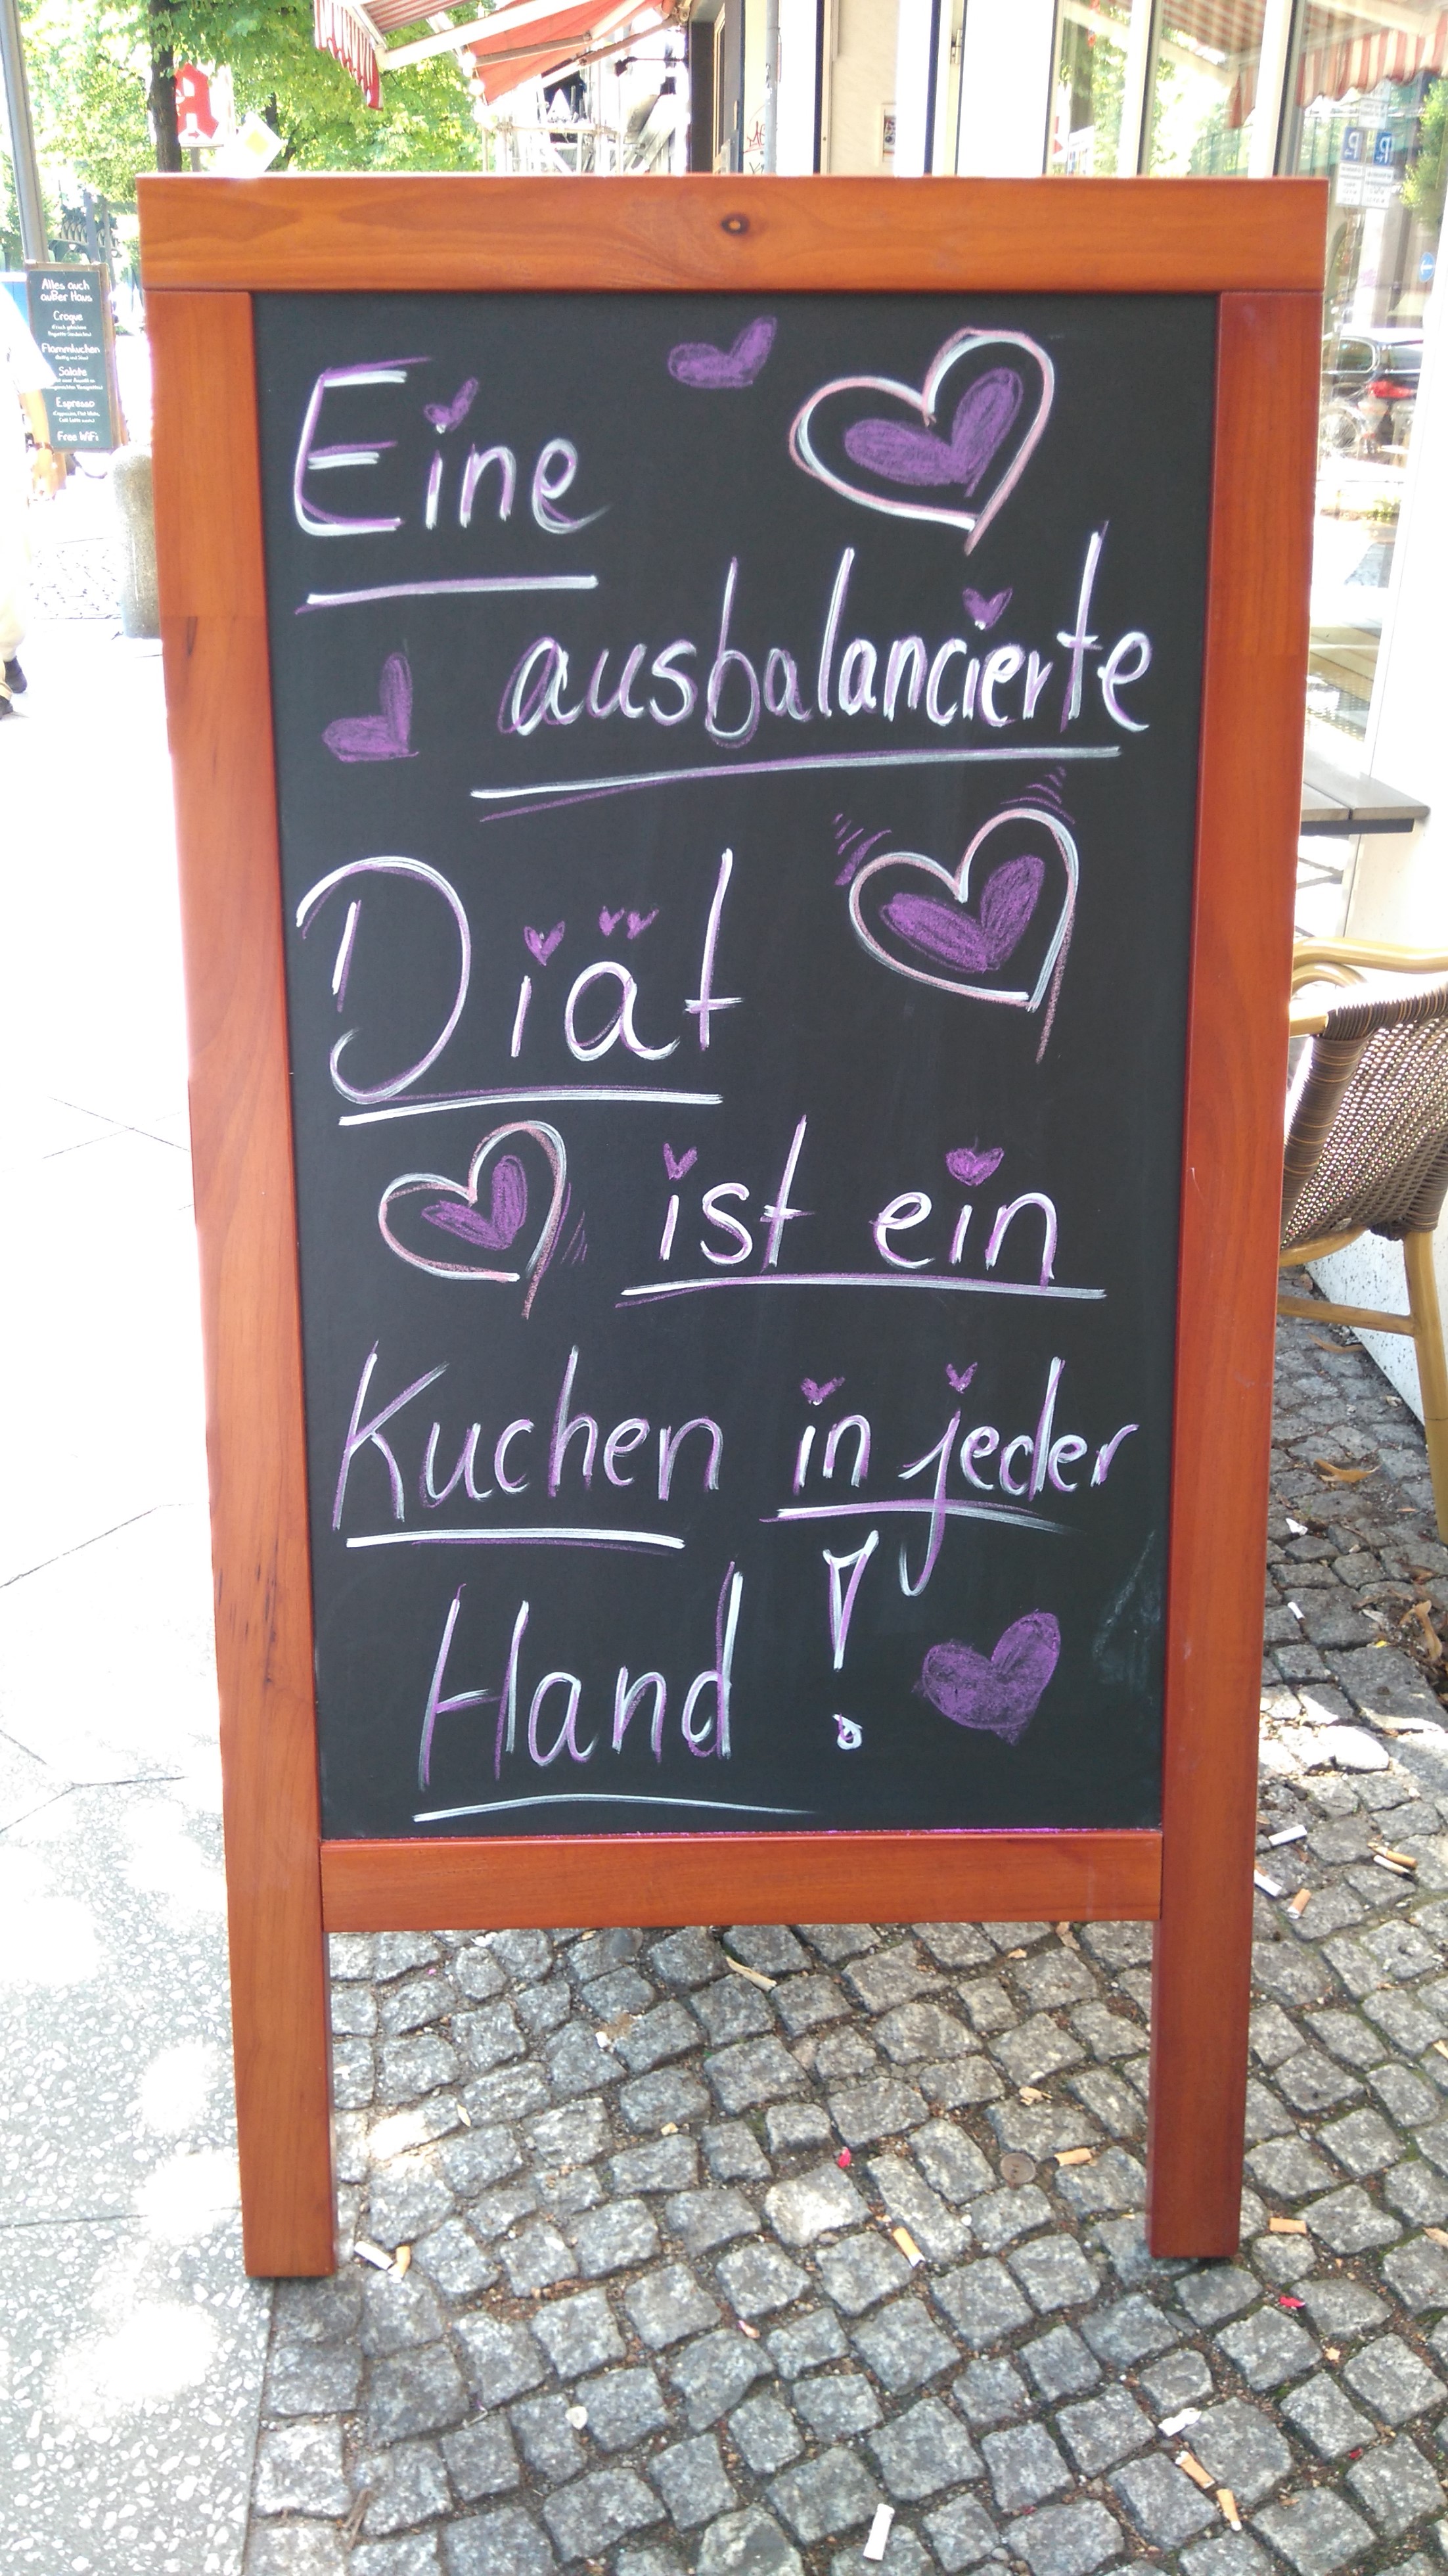 Eine
ausbalancierte
Diät
ist ein
Kuchen in jeder
Hand!
Alles auch
außer Haus
Croque
Flammkuchen
Salate
Espresso
Free WiFi